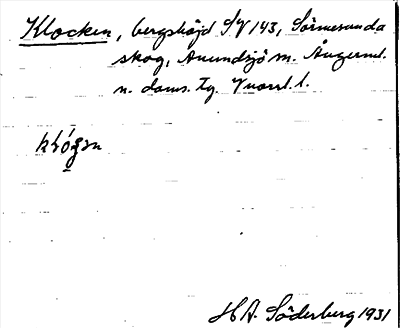 Klocken, bergshöjd S/V 143, Sörmesunda
skog, Anundsjö sn. Ångerml.
n. doms. tg. Vnorrl. l.
H A. Söderberg 1931